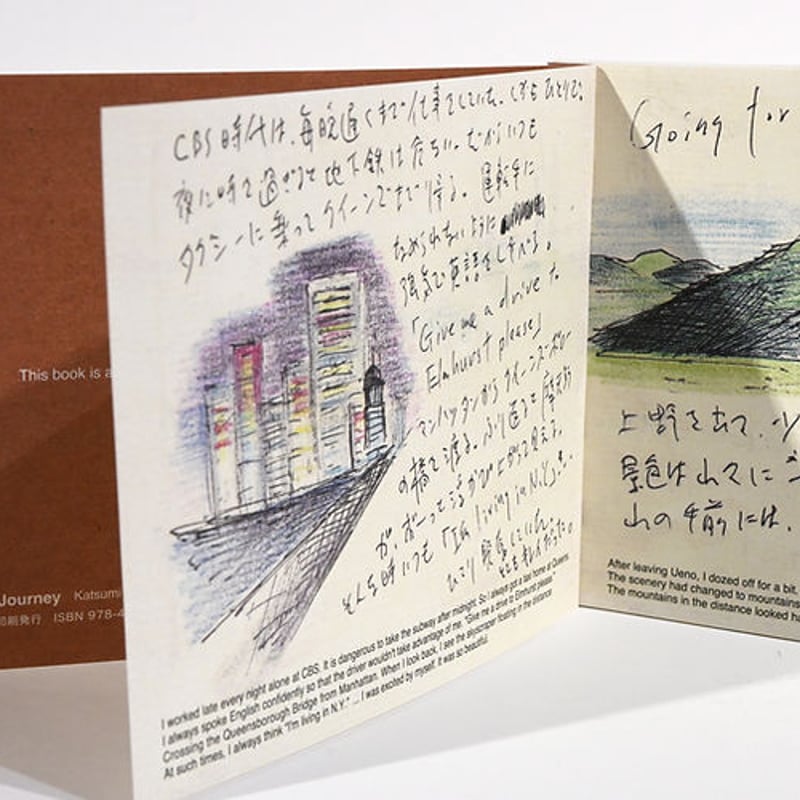 This book is a
Journey Katsumi
印刷発行 ISBN 978-4
CBS時代は、毎晩遅くまで仕事をしていた。しかもひとりで。
夜12時を過ぎると地下鉄は危ない。だからいつも
タクシーに乗ってクイーンズまで帰る。運転手に
なめられないように
強気で英語をしゃべる。
「Give me a drive to
Elmhurst please」
マンハッタンからクイーンズボロー
の橋を渡る。ふり返ると摩天楼
が、ボーっと浮かび上がって見える。
そんな時いつも「I'm living in N.Y.」
ひとり興奮していた。
とてもキレイだった。
I worked late every night alone at CBS. It is dangerous to take the subway after midnight. So I always got a taxi home at Queens.
I always spoke English confidently so that the driver wouldn't take advantage of me. "Give me a drive to Elmhurst please."
Crossing the Queensborough Bridge from Manhattan. When I look back, I see the skyscraper floating in the distance
At such times, I always think "I'm living in N.Y." ... I was excited by myself. It was so beautiful.
Going for
上野を出て、少
景色は山々に
山の手前には、
After leaving Ueno, I dozed off for a bit,
The scenery had changed to mountains
The mountains in the distance looked ha